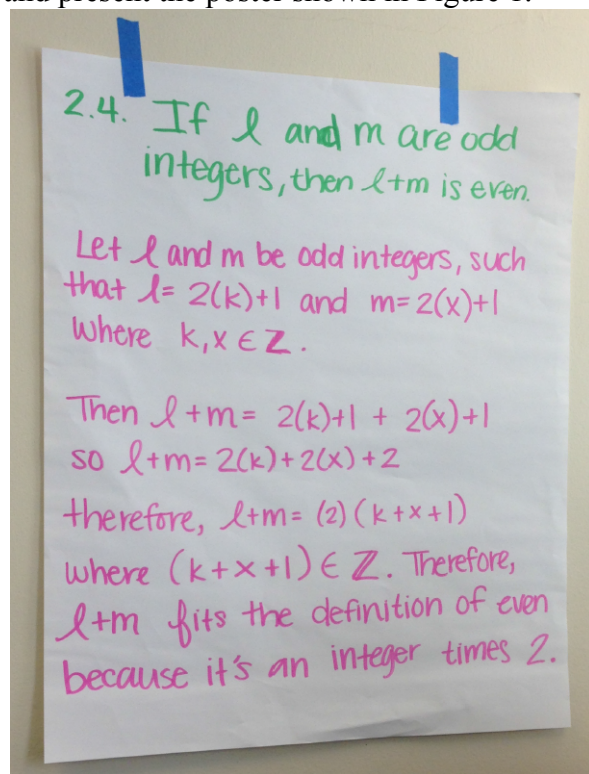 and present the poster shown in Figure 1.
2.4. If l and m are odd
integers, then l+m is even.
Let l and m be odd integers, such
that l= 2(k)+1 and m= 2(x)+1
where k,x ∈ ℤ.
Then l+m= 2(k)+1 + 2(x)+1
so l+m= 2(k)+2(x)+2
therefore, l+m= (2)(k+x+1)
where (k+x+1) ∈ ℤ. Therefore,
l+m fits the definition of even
because it's an integer times 2.